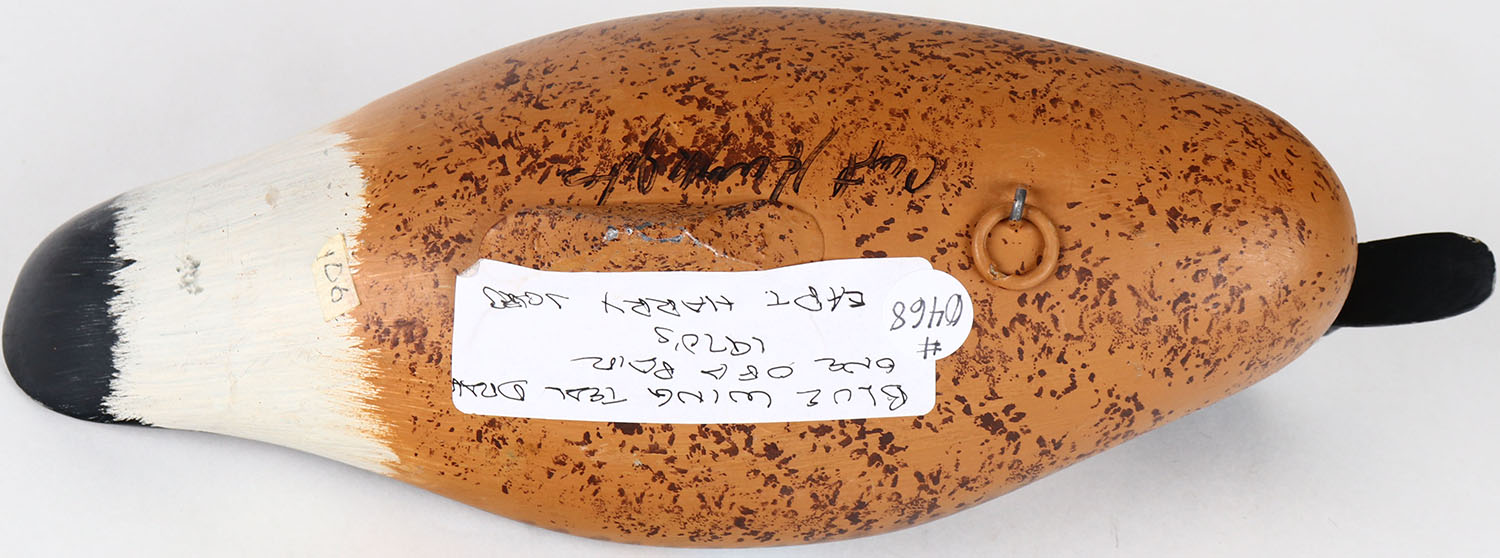 BLUE WING TEAL DRAK
ONE OF A PAIR
1970'S
CAPT. HARRY JOBES
#
0468
106
Capt Harry Jobes